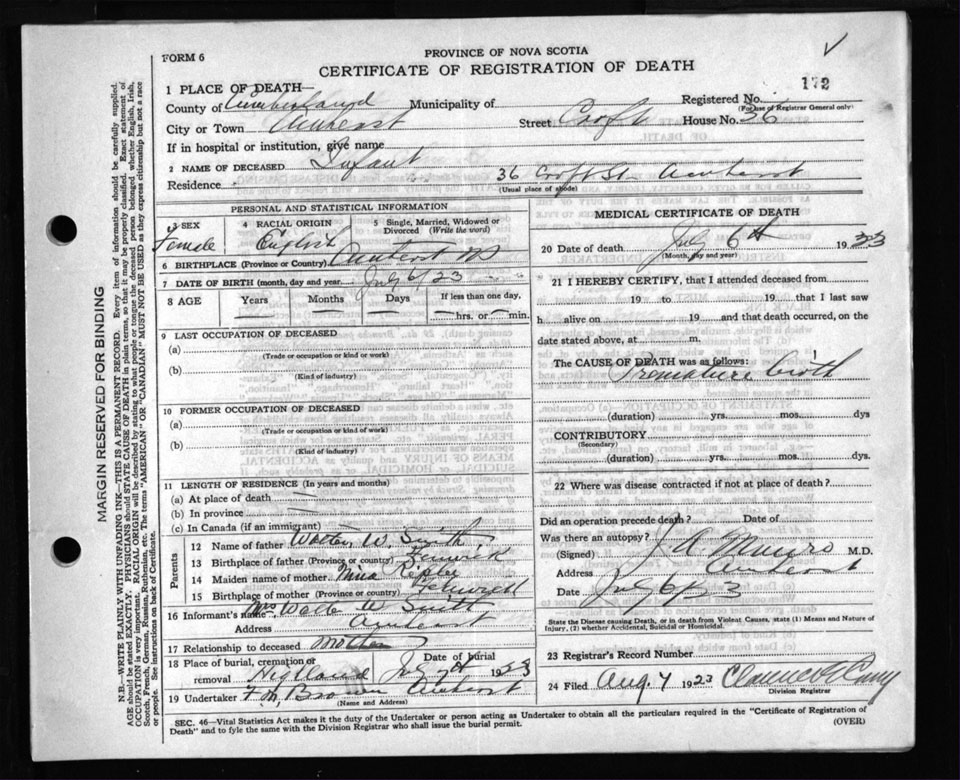 PROVINCE OF NOVA SCOTIA
FORM 6
CERTIFICATE OF REGISTRATION OF DEATH
172
1 PLACE OF DEATH—
County of Cumberland Municipality of Registered No.
(For use of Registrar General only)
City or Town Amherst Street Croft House No. 36
If in hospital or institution, give name
2 NAME OF DECEASED Infant
Residence 36 Croft St. Amherst
(Usual place of abode)
PERSONAL AND STATISTICAL INFORMATION
3 SEX Female 4 RACIAL ORIGIN English 5 Single, Married, Widowed or Divorced (Write the word)
6 BIRTHPLACE (Province or Country) Amherst NS
7 DATE OF BIRTH (month, day and year) July 6/23
8 AGE Years Months Days If less than one day,
— — — — hrs. or — min.
9 LAST OCCUPATION OF DECEASED
(a)
(Trade or occupation or kind or work)
(b)
(Kind of industry)
10 FORMER OCCUPATION OF DECEASED
(a)
(Trade or occupation or kind of work)
(b)
(Kind of industry)
11 LENGTH OF RESIDENCE (In years and months)
(a) At place of death —
(b) In province —
(c) In Canada (if an immigrant) —
Parents
12 Name of father Walter W. Smith
13 Birthplace of father (Province or country) Fenwick
14 Maiden name of mother Nina
15 Birthplace of mother (Province or country)
16 Informant's name Mrs Walter W Smith
Address Amherst
17 Relationship to deceased Mother
18 Place of burial, cremation or removal Highland Date of burial July 1923
19 Undertaker F. M. Brown Amherst
(Name and Address)
MEDICAL CERTIFICATE OF DEATH
20 Date of death July 6th 1923
(Month, day and year)
21 I HEREBY CERTIFY, that I attended deceased from
19 to 19 that I last saw
h alive on 19 and that death occurred, on the
date stated above, at m.
The CAUSE OF DEATH was as follows:
Premature birth
(duration) yrs. mos. dys
CONTRIBUTORY
(Secondary)
(duration) yrs. mos. dys.
22 Where was disease contracted if not at place of death?
Did an operation precede death? Date of
Was there an autopsy?
(Signed) J A Munro M.D.
Address Amherst
Date July 6/23
State the Disease causing Death, or in death from Violent Causes, state (1) Means and Nature of
Injury, (2) whether Accidental, Suicidal or Homicidal.
23 Registrar's Record Number
24 Filed Aug. 7 1923 Clarence
Division Registrar
SEC. 46—Vital Statistics Act makes it the duty of the Undertaker or person acting as Undertaker to obtain all the particulars required in the "Certificate of Registration of
Death" and to fyle the same with the Division Registrar who shall issue the burial permit.
(OVER)
MARGIN RESERVED FOR BINDING
N.B.—WRITE PLAINLY WITH UNFADING INK—THIS IS A PERMANENT RECORD. Every item of information should be carefully supplied.
AGE should be stated EXACTLY. PHYSICIANS should STATE CAUSE OF DEATH in plain terms, so that it may be properly classified. Exact statement of
OCCUPATION is very important. RACIAL ORIGIN will be described by stating to what people or tongue the deceased person belonged whether English, Irish,
Scotch, French, German, Russian, Ruthenian, etc. The terms "AMERICAN" or "CANADIAN" MUST NOT BE USED as they express citizenship but not a race
or people. See instructions on back of Certificate.